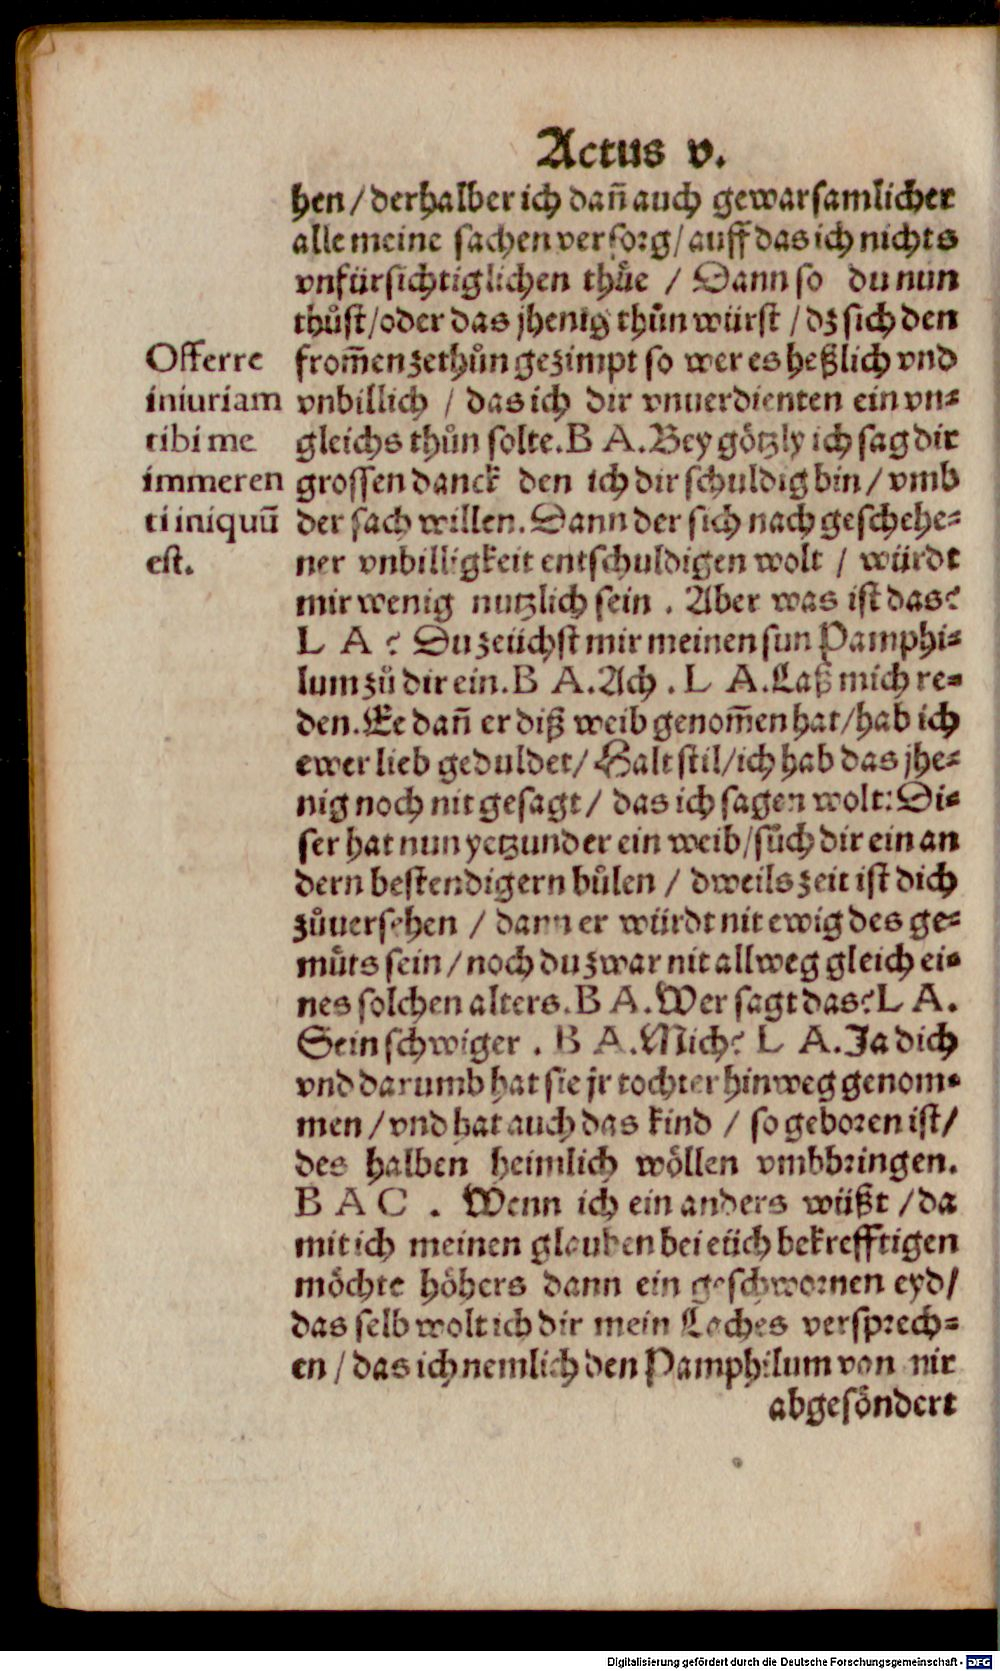 Actus v.
hen / derhalber ich dañ auch gewarsamlicher
alle meine sachen versorg / auff das ich nichts
vnfürsichtiglichen thůe / Dann so du nun
thůst / oder das jhenig thůn würst / dz sich den
from̃en zethůn gezimpt so wer es heßlich vnd
vnbillich / das ich dir vnuerdienten ein vn⸗
gleichs thůn solte. B A. Bey götzly ich sag dir
grossen danck den ich dir schuldig bin / vmb
der sach willen. Dann der sich nach geschehe⸗
ner vnbilligkeit entschuldigen wolt / würdt
mir wenig nutzlich sein . Aber was ist das?
L A ? Du zeüchst mir meinen sun Pamphi⸗
lum zů dir ein. B A. Ach . L A. Laß mich re⸗
den. Ee dañ er diß weib genom̃en hat / hab ich
ewer lieb geduldet / Halt stil / ich hab das jhe⸗
nig noch nit gesagt / das ich sagen wolt: Di⸗
ser hat nun yetzunder ein weib / sůch dir ein an
dern bestendigern bůlen / dweils zeit ist dich
zůuersehen / dann er würdt nit ewig des ge⸗
můts sein / noch du zwar nit allweg gleich ei⸗
nes solchen alters. B A. Wer sagt das? L A.
Sein schwiger . B A. Mich? L A. Ja dich
vnd darumb hat sie jr tochter hinweg genom⸗
men / vnd hat auch das kind / so geboren ist /
des halben heimlich wöllen vmbbringen.
B A C . Wenn ich ein anders wüßt / da
mit ich meinen glauben bei eüch bekrefftigen
möchte höhers dann ein geschwornen eyd /
das selb wolt ich dir mein Laches versprech⸗
en / das ich nemlich den Pamphilum von mir
abgesöndert
Offerre
iniuriam
tibi me
immeren
ti iniquũ
est.
Digitalisierung gefördert durch die Deutsche Forschungsgemeinschaft - DFG